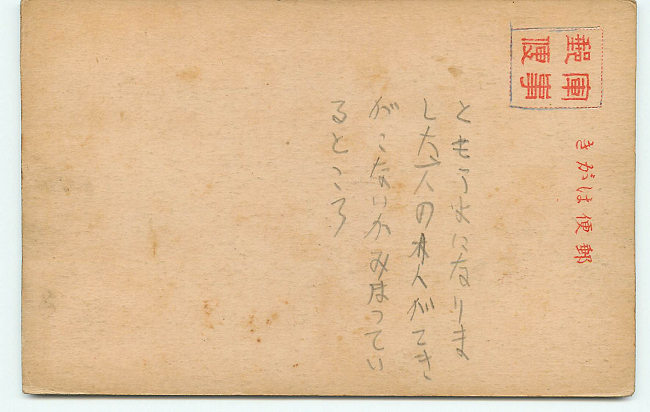 軍事
郵便
郵便はがき
ともう になりま
した 人の 人がてき
がこないかみはってい
るところ